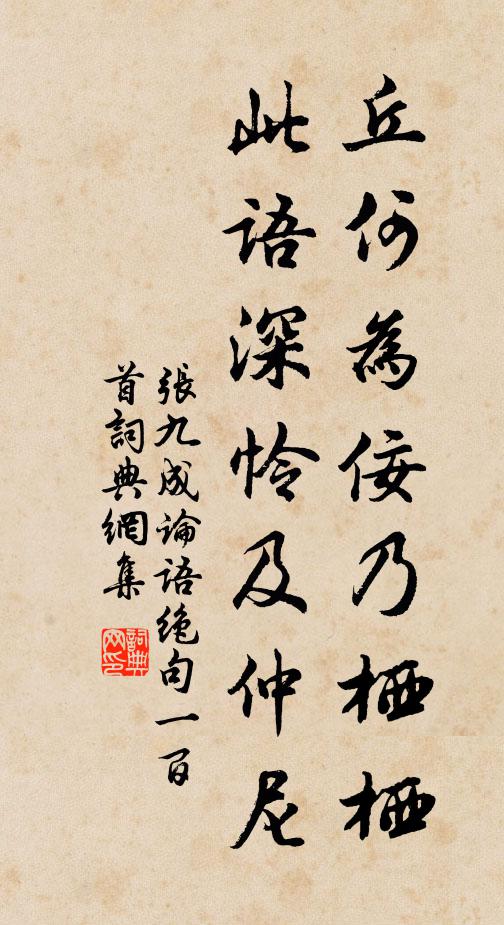 丘何為佞乃栖栖
此語深怜及仲尼
張九成論語絶句一百
首詞典網集
詞典
网印